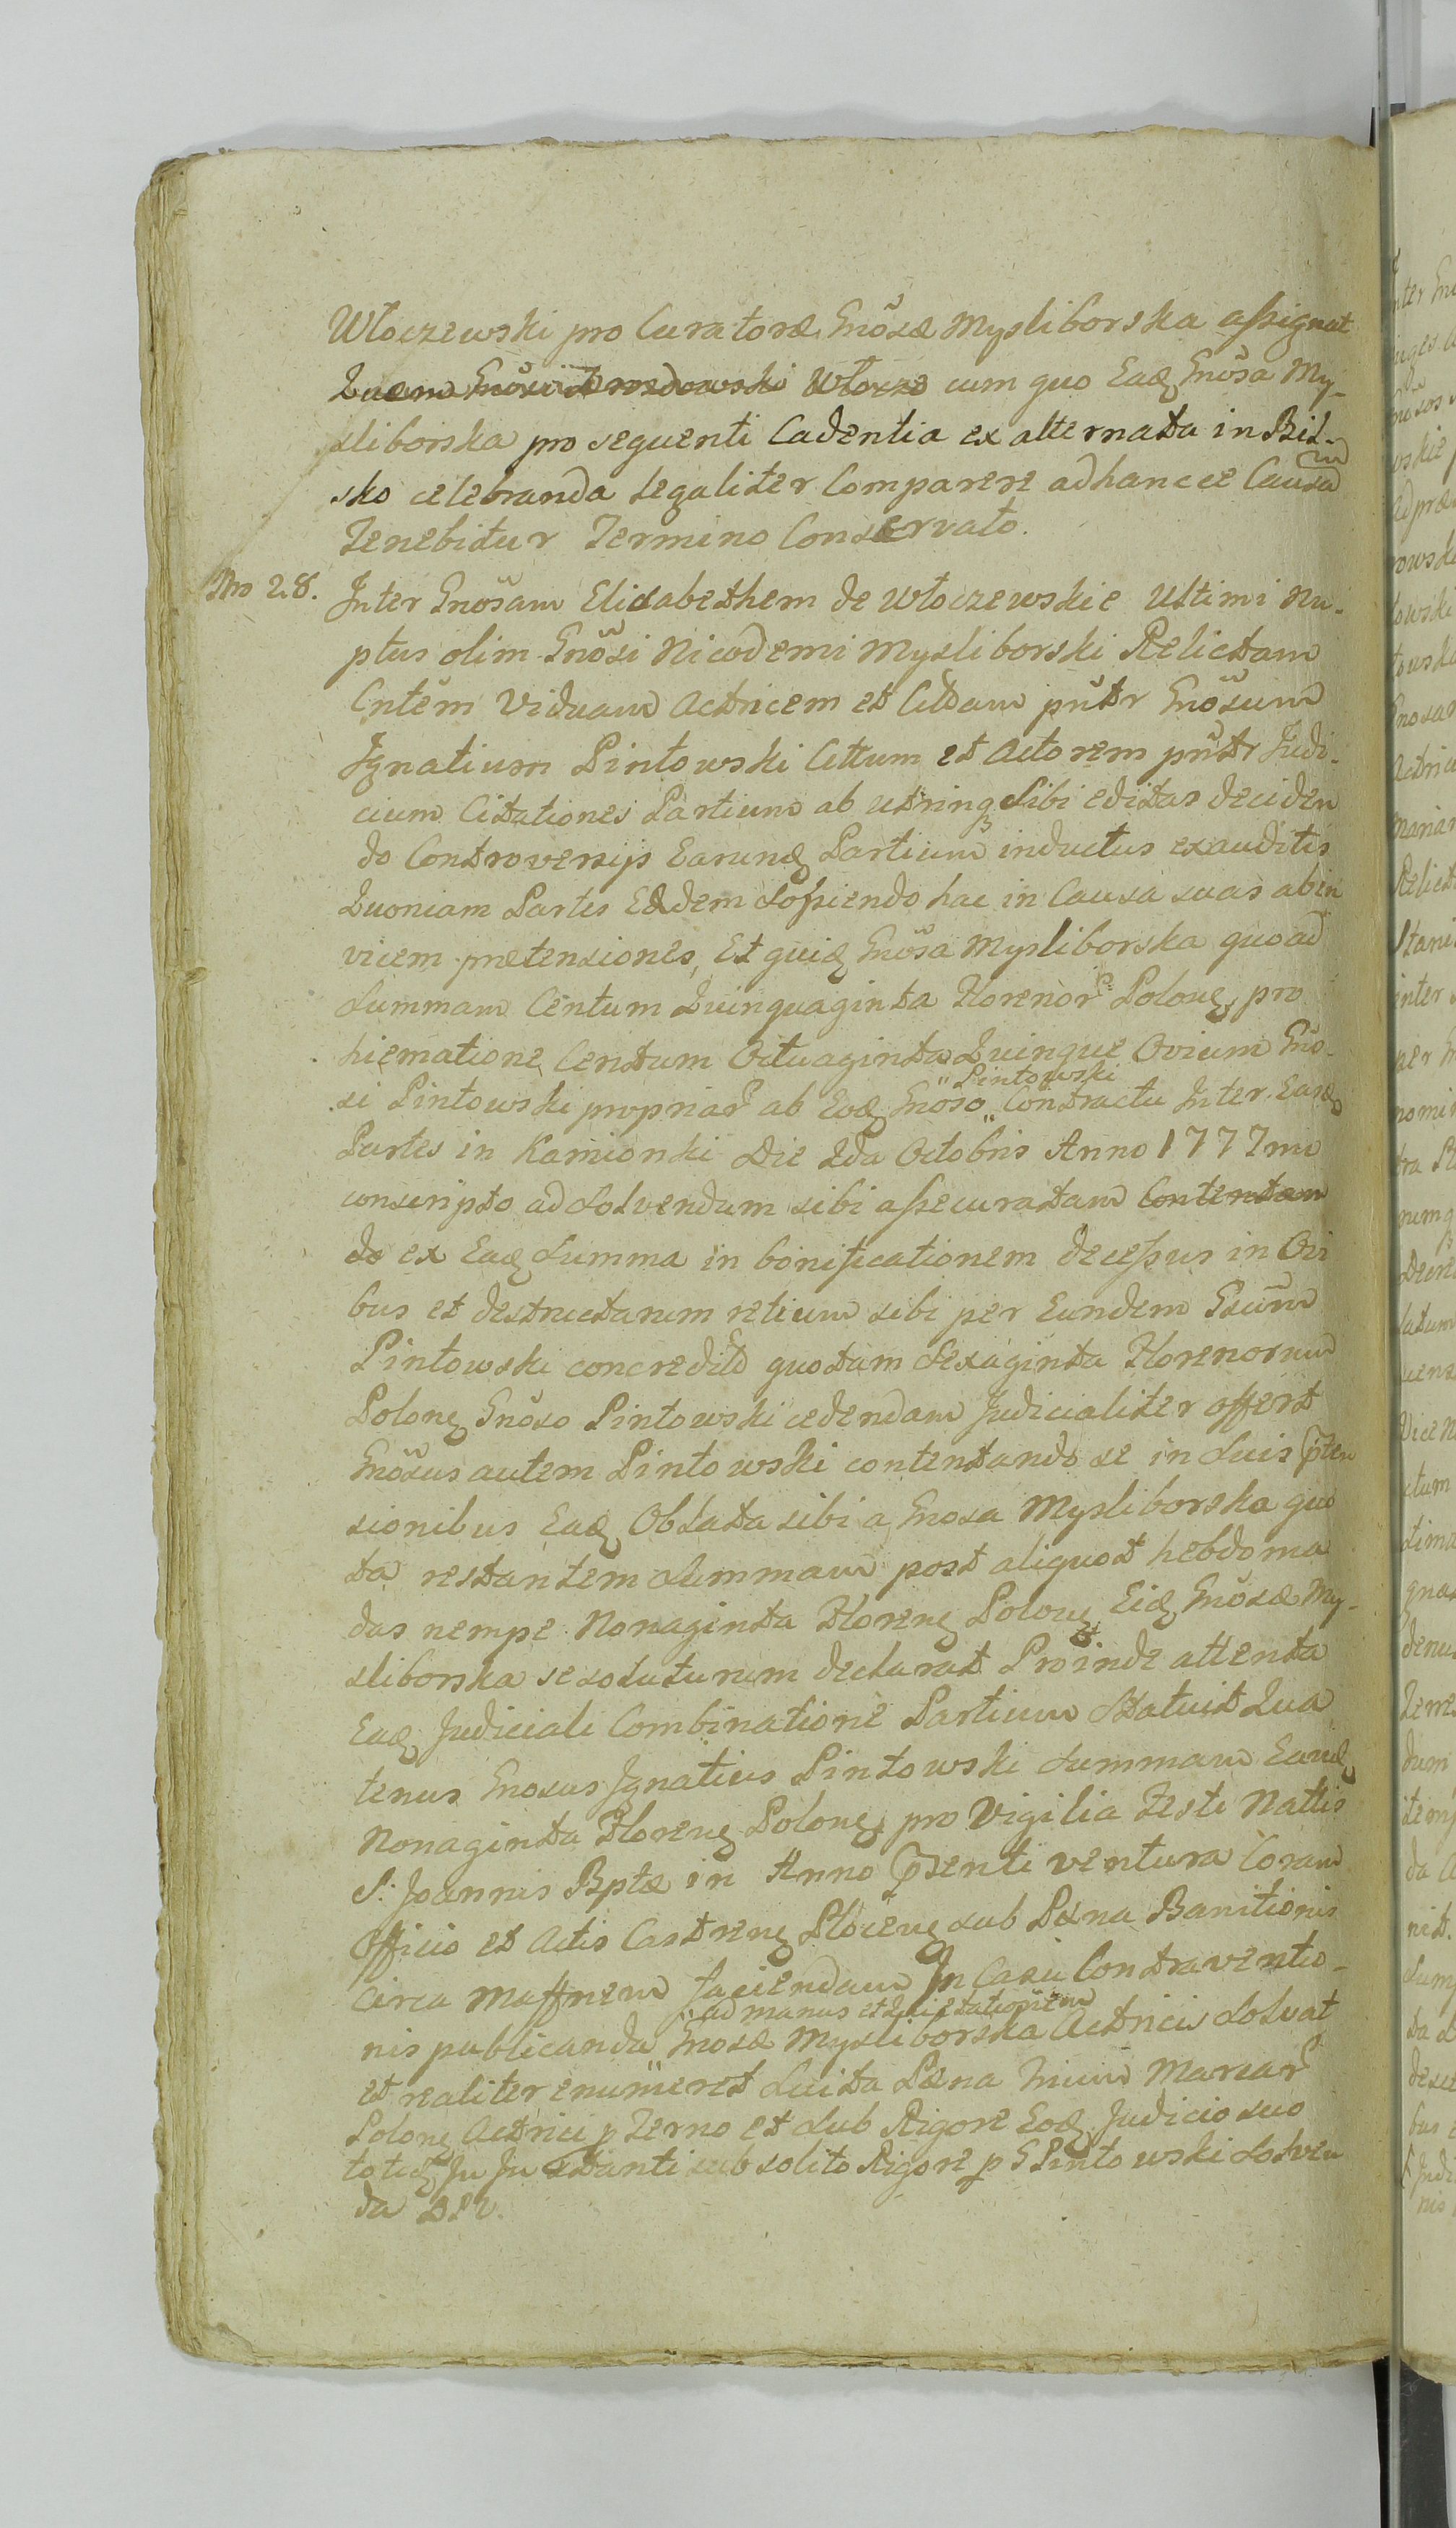 Włoczewski pro Curatoræ Gnosæ Mysliborska assignat
cum quo Eaq Gnosa My-
sliborska pro sequenti Cadentia ex alternata in Biel-
sko celebranda legaliter Comparere adhancce Causam
Tenebitur Termino Conservato.
Nro 28. Inter Gnosam Elisabethem de Włoczewskie Ultimi Nu-
ptus olim Gnosi Nicodemi Mysliborski Relictam
Cntem Viduam Actricem et Cittam pntr Gnosum
Ignatium Pintowski Cittum et Actorem pntr Judi-
cium Citationes Partium ab utrinq sibi editas deciden
do Controversijs Earunq Partium inductus exauditis
Quoniam Partes Eædem sopiendo hac in Causa suas abin
vicem prætensiones, Et quiq Gnosa Mysliborska quoad
Summam Centum Quinquaginta Florenor Polonq pro
hiematione Centum Octuaginta Quinque Ovium Gno-
si Pintowski propriar ab Eoq Gnoso Pintowski Contractu Inter Easq
Partes in Kamionki Die 2da Octobris Anno 1777mo
conscripto ad solvendum sibi assecuratam Contentan
do ex Eaq Summa in bonificationem decessus in Ovi
bus et destructarum retium sibi per Eundem Gsum
Pintowski concredit quotam Sexaginta Florenorum
Polonq Gnoso Pintowski cedendam Judicialiter offert
Gnosus autem Pintowski contentando se in suis Pten
sionibus Eaq Oblata sibi a Gnosa Mysliborska quo
ta restantem Summam post aliquot hebdoma
das nempe Nonaginta Florenq Polonq Eiq Gnosæ My-
sliborska se soluturum declarat. Proinde attenta
Eaq Judiciali Combinatione Partium Statuit Qua
tenus Gnosus Ignatius Pintowski Summam Eanq
Nonaginta Florenq Polonq pro Vigilia Festi Nattis
S: Joannis Bptæ in Anno Psenti ventura Coram
Officio et Actis Castrenq Płocenq sub Pæna Banitionis
circa Maffnem faciendam In Casu Contraventio-
nis publicanda ad manus et quietationem Gnosæ Mysliborska Actricis solvat
et realiter enumeret Luita Pæna Trium Marcar
Polonq Actrici p Terno et sub Rigore Eoq Judicio suo
totiq In Instanti sub solito Rigore p G Pintowski Solven
da DPV.